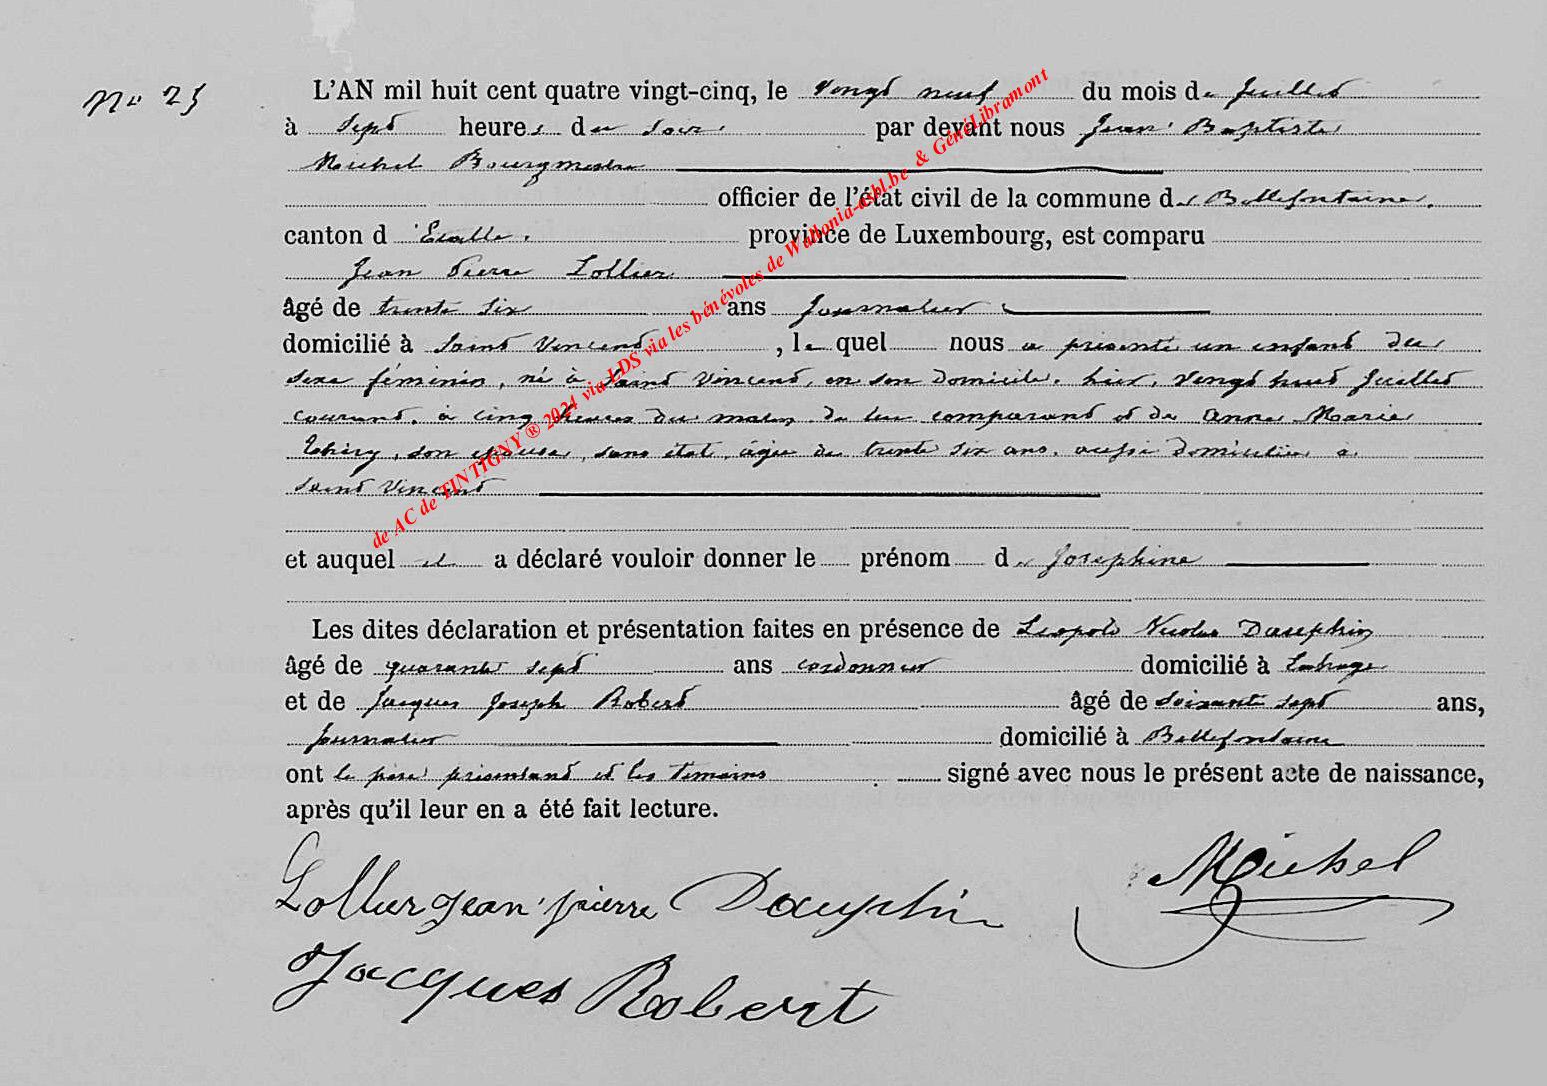 No 25
L'AN mil huit cent quatre vingt-cinq, le vingt neuf du mois de Juillet
à sept heures du soir par devant nous Jean Baptiste
Michel Bourgmestre
officier de l'état civil de la commune de Bellefontaine.
canton d'Etalle. province de Luxembourg, est comparu
Jean Pierre Lollier
âgé de trente six ans Journalier
domicilié à Saint Vincent, lequel nous a présenté un enfant du
sexe féminin, né à Saint Vincent, en son domicile, hier, vingt huit Juillet
courant, à cinq heures du matin, de lui comparant et de Anne Marie
Thiry, son épouse, sans état, âgée de trente six ans, aussi domiciliée à
Saint Vincent
et auquel il a déclaré vouloir donner le prénom de Josephine
Les dites déclaration et présentation faites en présence de Léopold Nicolas Dauphin
âgé de quarante sept ans cordonnier domicilié à Lahage
et de Jacques Joseph Robert âgé de soixante sept ans,
Journalier domicilié à Bellefontaine
ont le père présentant et les témoins signé avec nous le présent acte de naissance,
après qu'il leur en a été fait lecture.
Lollier Jean pierre Dauphin Michel
Jacques Robert
de AC de TINTIGNY ® 2024 via LDS via les bénévoles de Wallonia-asbl.be & GénéLibramont